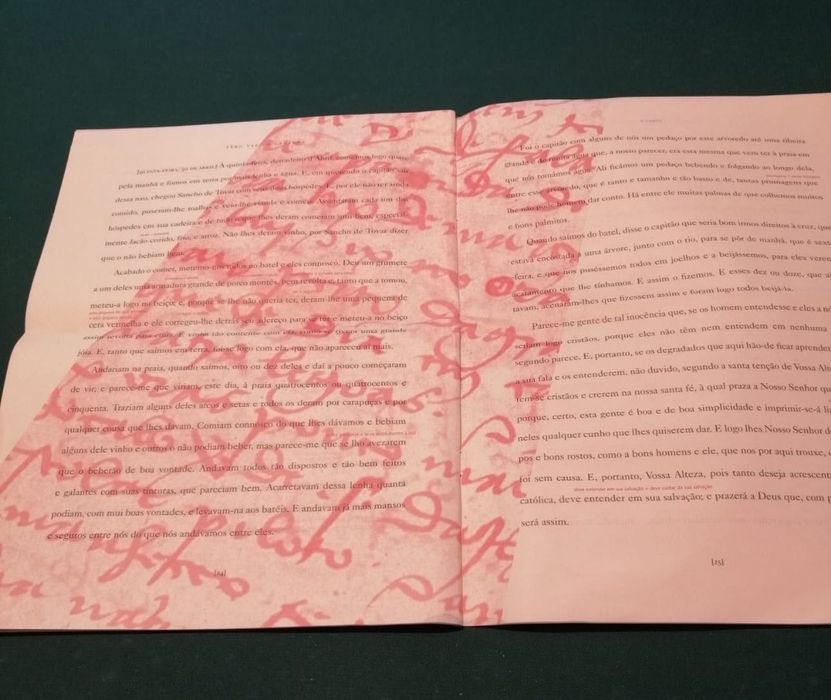 PÊRO VAZ
[QUINTA-FEIRA, 30 DE ABRIL] À quinta-feira, derradeiro d'Abril, comemos logo quase
pela manhã e fomos em terra por mais lenha e água. E, em querendo o capitão sair
desta nau, chegou Sancho de Tovar com seus dois hóspedes. E, por ele não ter ainda
comido, puseram-lhe toalhas e veio-lhe vianda e comeu. Assentaram cada um dos
hóspedes em sua cadeira e de tudo o que lhes deram comeram mui bem, especial-
mente lacão cozido, frio, e arroz. Não lhes deram vinho, por Sancho de Tovar dizer
que o não bebiam bem.
Acabado o comer, metemo-nos todos no batel e eles connosco. Deu um grumete
a um deles uma armadura grande de porco montês, bem revolta e, tanto que a tomou,
meteu-a logo no beiço e, porque se lhe não queria ter, deram-lhe uma pequena de
cera vermelha e ele corregeu-lhe detrás seu adereço para se ter e meteu-a no beiço
assim revolta para cima. E vinha tão contente com ela, como se tivera uma grande
jóia. E, tanto que saímos em terra, foi-se logo com ela, que não apareceu aí mais.
Andariam na praia, quando saímos, oito ou dez deles e daí a pouco começaram
de vir; e parece-me que viriam, este dia, à praia quatrocentos ou quatrocentos e
cinquenta. Traziam alguns deles arcos e setas e todos os deram por carapuças e por
qualquer cousa que lhes davam. Comiam connosco do que lhes dávamos e bebiam
alguns dele vinho e outros o não podiam beber, mas parece-me que se lho avezarem
que o beberão de boa vontade. Andavam todos tão dispostos e tão bem feitos
e galantes com suas tinturas, que pareciam bem. Acarretavam dessa lenha quanta
podiam, com mui boas vontades, e levavam-na aos batéis. E andavam já mais mansos
e seguros entre nós do que nós andávamos entre eles.
[24]
Foi o capitão com alguns de nós um pedaço por este arvoredo até uma ribeira
grande e de muita água que, a nosso parecer, era esta mesma que vem ter à praia em
que nós tomámos água. Ali ficámos um pedaço bebendo e folgando ao longo dela,
entre esse arvoredo, que é tanto e tamanho e tão basto e de tantas prumagens que
lhe não pode homem dar conto. Há entre ele muitas palmas de que colhemos muitos
e bons palmitos.
Quando saímos do batel, disse o capitão que seria bom irmos direitos à cruz, que
estava encostada a uma árvore, junto com o rio, para se pôr de manhã, que é sexta-
-feira, e que nos puséssemos todos em joelhos e a beijássemos, para eles verem
acatamento que lhe tínhamos. E assim o fizemos. E esses dez ou doze, que aí
tavam, acenaram-lhes que fizessem assim e foram logo todos beijá-la.
Parece-me gente de tal inocência que, se os homem entendesse e eles a nós
seriam logo cristãos, porque eles não têm nem entendem em nenhuma
segundo parece. E, portanto, se os degradados que aqui hão-de ficar aprender
a sua fala e os entenderem, não duvido, segundo a santa tenção de Vossa Alt
rem-se cristãos e crerem na nossa santa fé, à qual praza a Nosso Senhor qu
porque, certo, esta gente é boa e de boa simplicidade e imprimir-se-á li
neles qualquer cunho que lhes quiserem dar. E logo lhes Nosso Senhor d
pos e bons rostos, como a bons homens e ele, que nos por aqui trouxe,
foi sem causa. E, portanto, Vossa Alteza, pois tanto deseja acrescent
deve entender em sua salvação = deve cuidar da sua salvação
católica, deve entender em sua salvação; e prazerá a Deus que, com p
será assim.
[25]